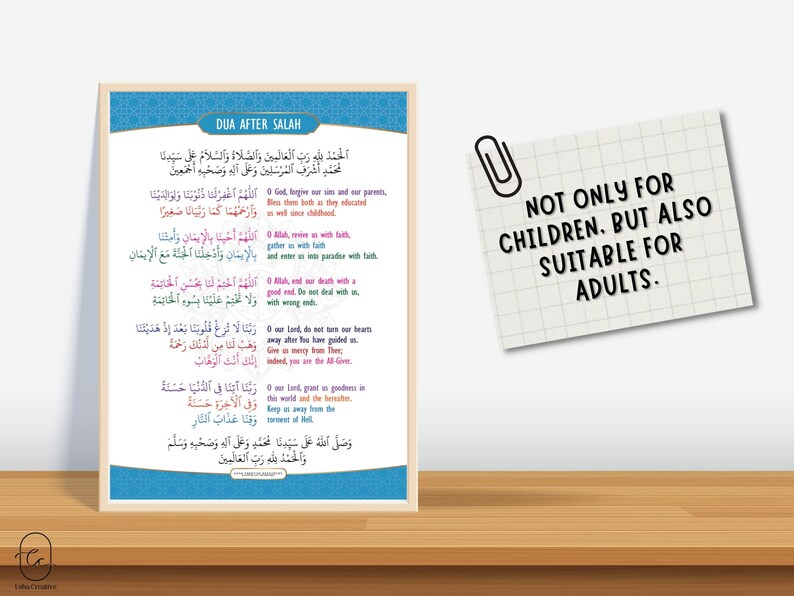 DUA AFTER SALAH
اَلْحَمْدُ لِلّٰهِ رَبِّ الْعَالَمِيْنَ وَالصَّلَاةُ وَالسَّلَامُ عَلَى سَيِّدِنَا
مُحَمَّدٍ أَشْرَفِ الْمُرْسَلِيْنَ وَعَلَى آلِهِ وَصَحْبِهِ أَجْمَعِيْنَ
اَللّٰهُمَّ اغْفِرْلَنَا ذُنُوْبَنَا وَلِوَالِدِيْنَا
وَارْحَمْهُمَا كَمَا رَبَّيَانَا صَغِيْرًا
O God, forgive our sins and our parents,
Bless them both as they educated
us well since childhood.
اَللّٰهُمَّ أَحْيِنَا بِالْإِيْمَانِ وَأَمِتْنَا
بِالْإِيْمَانِ وَأَدْخِلْنَا الْجَنَّةَ مَعَ الْإِيْمَانِ
O Allah, revive us with faith,
gather us with faith
and enter us into paradise with faith.
اَللّٰهُمَّ اخْتِمْ لَنَا بِحُسْنِ الْخَاتِمَةِ
وَلَا تَخْتِمْ عَلَيْنَا بِسُوْءِ الْخَاتِمَةِ
O Allah, end our death with a
good end. Do not deal with us,
with wrong ends.
رَبَّنَا لَا تُزِغْ قُلُوْبَنَا بَعْدَ إِذْ هَدَيْتَنَا
وَهَبْ لَنَا مِن لَّدُنْكَ رَحْمَةً
إِنَّكَ أَنْتَ الْوَهَّابُ
O our Lord, do not turn our hearts
away after You have guided us.
Give us mercy from Thee;
indeed, you are the All-Giver.
رَبَّنَا آتِنَا فِي الدُّنْيَا حَسَنَةً
وَفِي الْآخِرَةِ حَسَنَةً
وَقِنَا عَذَابَ النَّارِ
O our Lord, grant us goodness in
this world and the hereafter.
Keep us away from the
torment of Hell.
وَصَلَّى اللّٰهُ عَلَى سَيِّدِنَا مُحَمَّدٍ وَعَلَى آلِهِ وَصَحْبِهِ وَسَلَّمَ
وَالْحَمْدُ لِلّٰهِ رَبِّ الْعَالَمِيْنَ
NOT ONLY FOR
CHILDREN, BUT ALSO
SUITABLE FOR
ADULTS.
Usha Creative